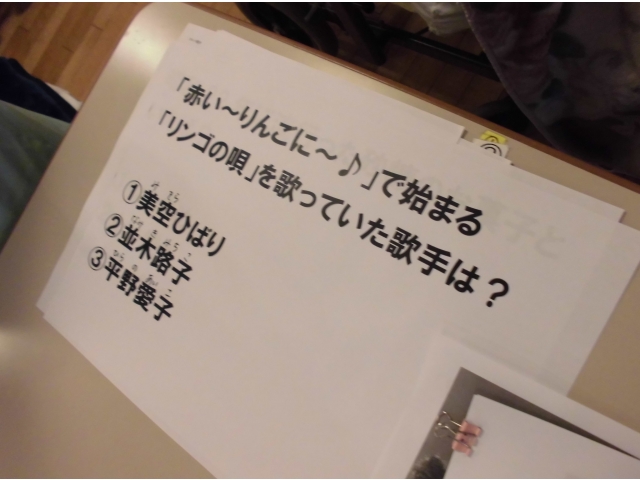 「赤い～りんごに～♪」で始まる
「リンゴの唄」を歌っていた歌手は？
①美空ひばり
②並木路子
③平野愛子